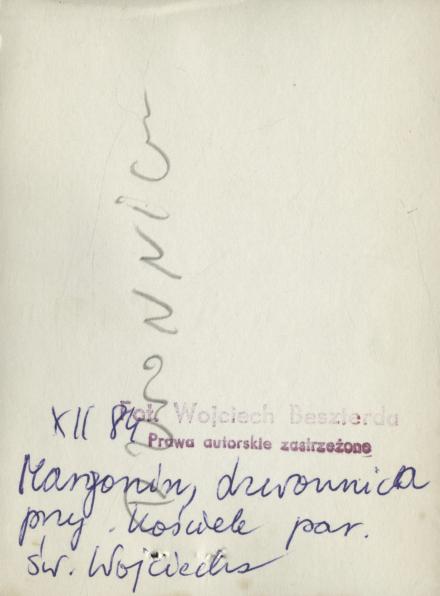 XII 84
Fot. Wojciech Beszterda
Prawa autorskie zastrzeżone
Margonin, dzwonnica
przy kościele par.
św. Wojciecha